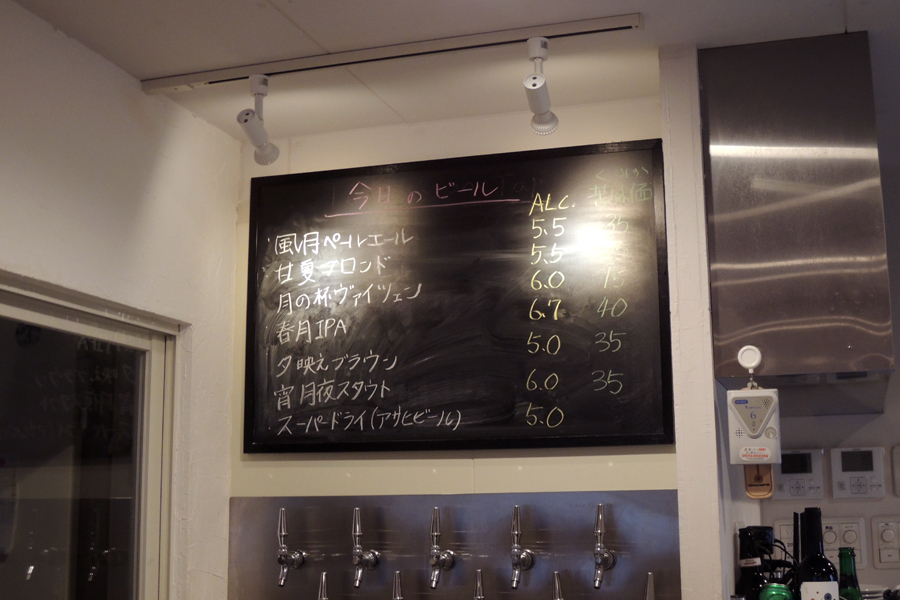 今月のビール
ALC. 苦味価
風月ペールエール 5.5 35
甘夏ブロンド 5.5
月の杯ヴァイツェン 6.0 15
春月IPA 6.7 40
夕映えブラウン 5.0 35
宵月夜スタウト 6.0 35
スーパードライ(アサヒビール) 5.0